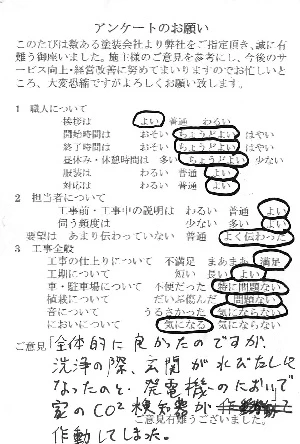 アンケートのお願い
このたびは数ある塗装会社より弊社をご指定頂き、誠に有
難う御座いました。施主様のご意見を参考にし、今後のサ
ービス向上・経営改善に努めてまいりますのでお忙しいと
ころ、大変恐縮ですがよろしくお願い致します。
1 職人について
挨拶は よい 普通 わるい
開始時間は おそい ちょうどよい はやい
終了時間は おそい ちょうどよい はやい
昼休み・休憩時間は 多い ちょうどよい 少ない
服装は わるい 普通 よい
対応は わるい 普通 よい
2 担当者について
工事前・工事中の説明は わるい 普通 よい
伺う頻度は 少ない 多い よい
要望は あまり伝わっていない 普通 よく伝わった
3 工事全般
工事の仕上りについて 不満足 まあまあ 満足
工期について 短い 長い よい
車・駐車場について 不便だった 特に問題ない
植栽について だいぶ傷んだ 問題ない
音について うるさかった 気にならない
においについて 気になる 気にならない
ご意見「全体的に良かったのですが、
洗浄の際、玄関が水びたしに
なったのと、発電機のにおいで
家のCO2検知器が
ご意見有難うございました。
作動してしまった。